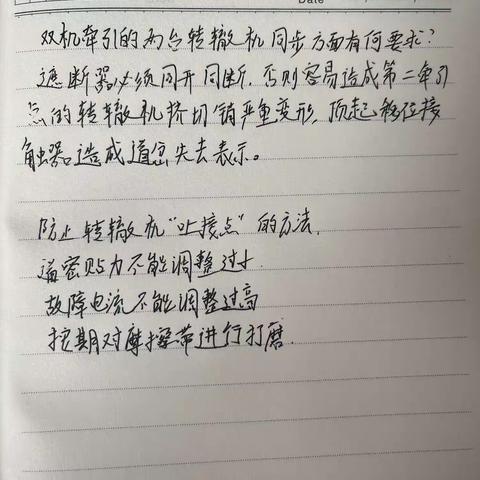 Date
双机牵引的两台转辙机同步方面有何要求?
遮断器必须同开同断.否则容易造成第二牵引
点的转辙机挤切销严重变形,顶起移位接
触器造成道岔失去表示。
防止转辙机“吐接点”的方法.
道密贴力不能调整过大
故障电流不能调整过高
按期对摩擦带进行打磨.